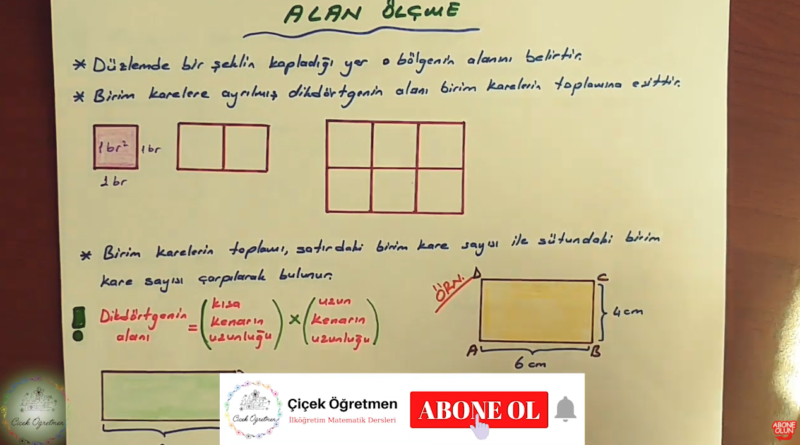 ALAN ÖLÇME
* Düzlemde bir şeklin kapladığı yer o bölgenin alanını belirtir.
* Birim karelere ayrılmış dikdörtgenin alanı birim karelerin toplamına eşittir.
1br²
1br
1br
* Birim karelerin toplamı, satırdaki birim kare sayısı ile sütundaki birim
kare sayısı çarpılarak bulunur.
! Dikdörtgenin alanı = (kısa kenarın uzunluğu) × (uzun kenarın uzunluğu)
ÖRN.
D
C
4cm
A
B
6 cm
Çiçek Öğretmen
Çiçek Öğretmen
İlköğretim Matematik Dersleri
ABONE OL
Çiçek Öğretmen
ABONE
OLUN